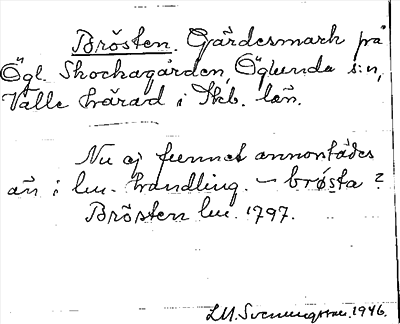 Brösten. Gärdesmark på
Ögl. Skockagården, Öglunda s:n,
Valle härad i Skb. län.
Nu ej funnet annorstädes
än i lm. handling. — brøsta ?
Brösten lm. 1797.
L.M. Svenungsson. 1946.